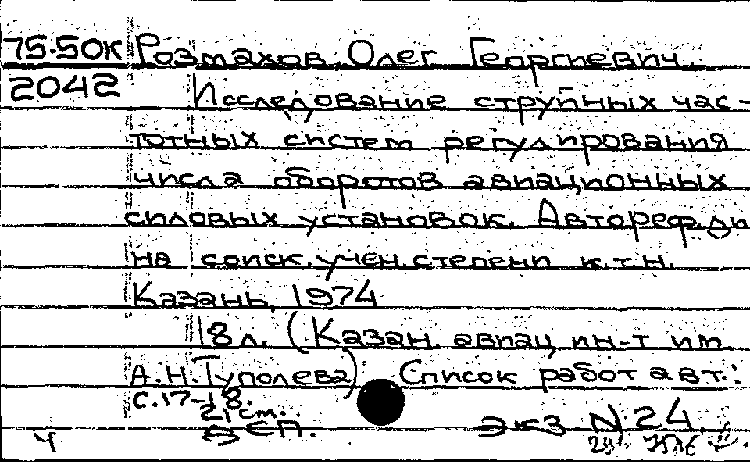 75-50к Розмахов Олег Георгиевич.
2042 Исследование струйных час-
тотных систем регулирования
числа оборотов авиационных
силовых установок. Автореф. ди
на соиск. учен. степени к.т.н.
Казань, 1974
18 л. (Казан. авиац. ин-т им.
А.Н. Туполева) Список работ авт.:
с. 17-18.
21 ст.
ЕП. Экз N 24.
ч